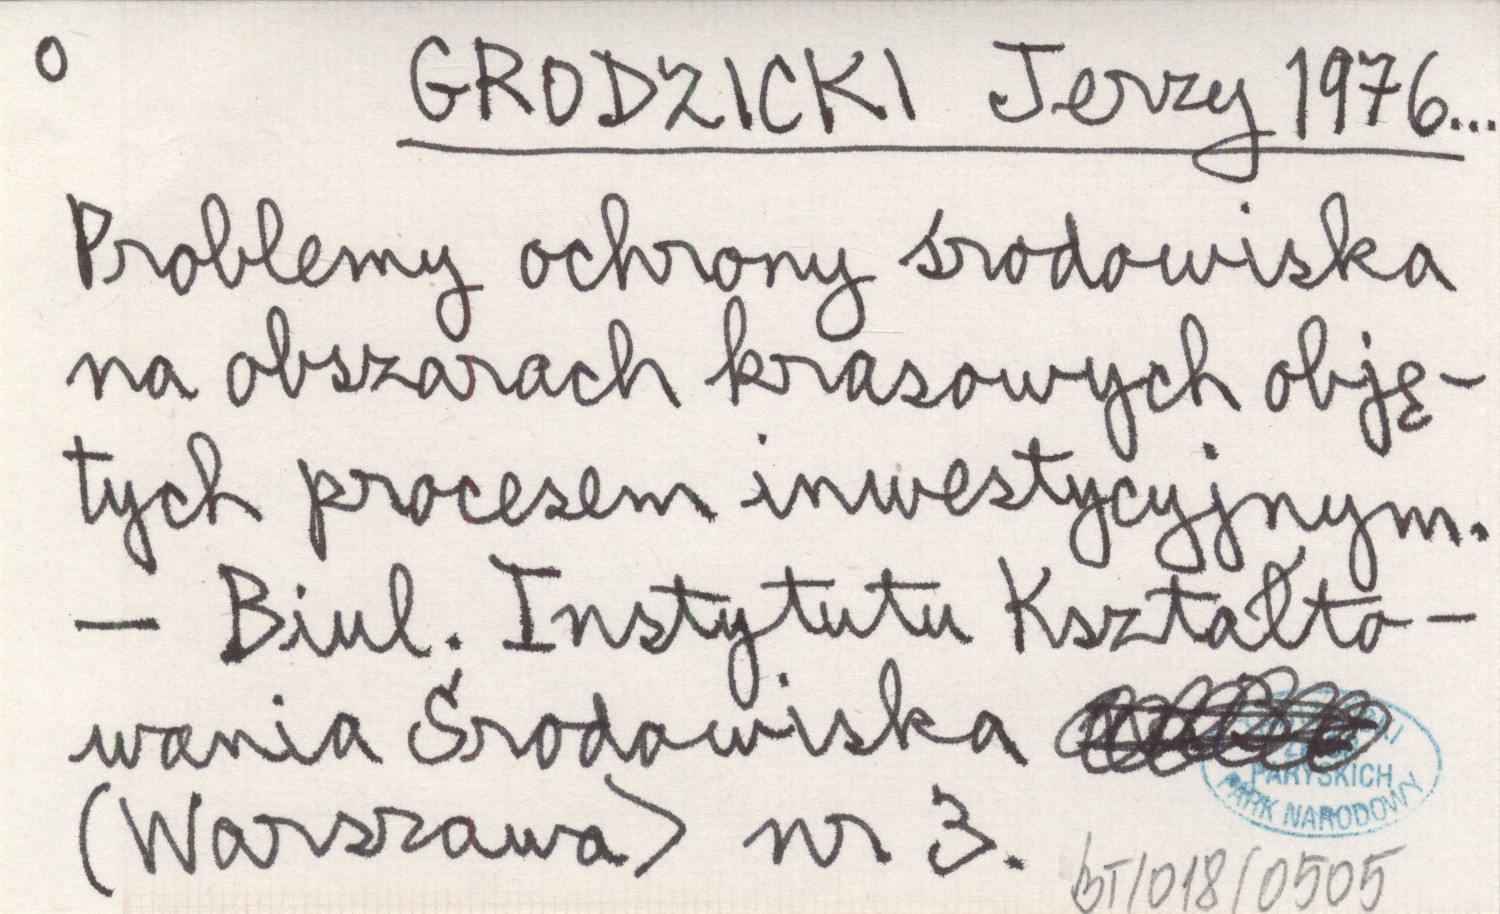 O GRODZICKI Jerzy 1976...
Problemy ochrony środowiska
na obszarach krasowych obję-
tych procesem inwestycyjnym.
— Biul. Instytutu Kształto-
wania Środowiska
(Warszawa) nr 3.
PARYSKICH
PARK NARODOWY
BT/018/0505